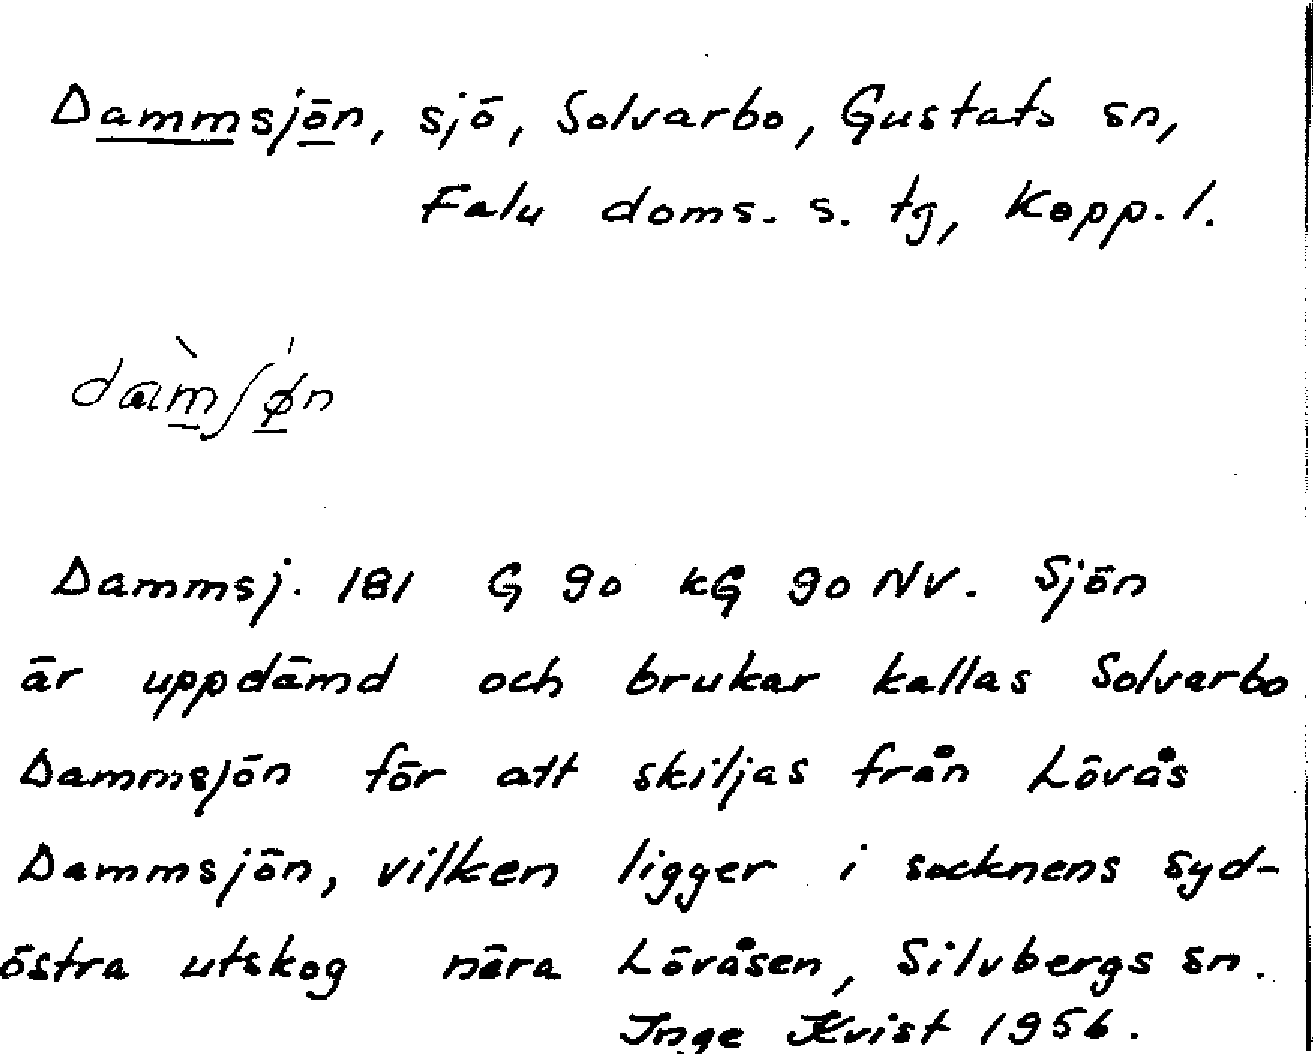 Dammsjön, sjö, Solvarbo, Gustafs sn,
Falu doms. s. tg, Kopp. l.
dam̀ʃǿn
Dammsj. 181 G 90 kG 90 NV. Sjön
är uppdämd och brukar kallas Solvarbo
Dammsjön för att skiljas från Lövås
Dammsjön, vilken ligger i socknens syd-
östra utskog nära Lövåsen, Silvbergs sn.
Inge Kvist 1956.